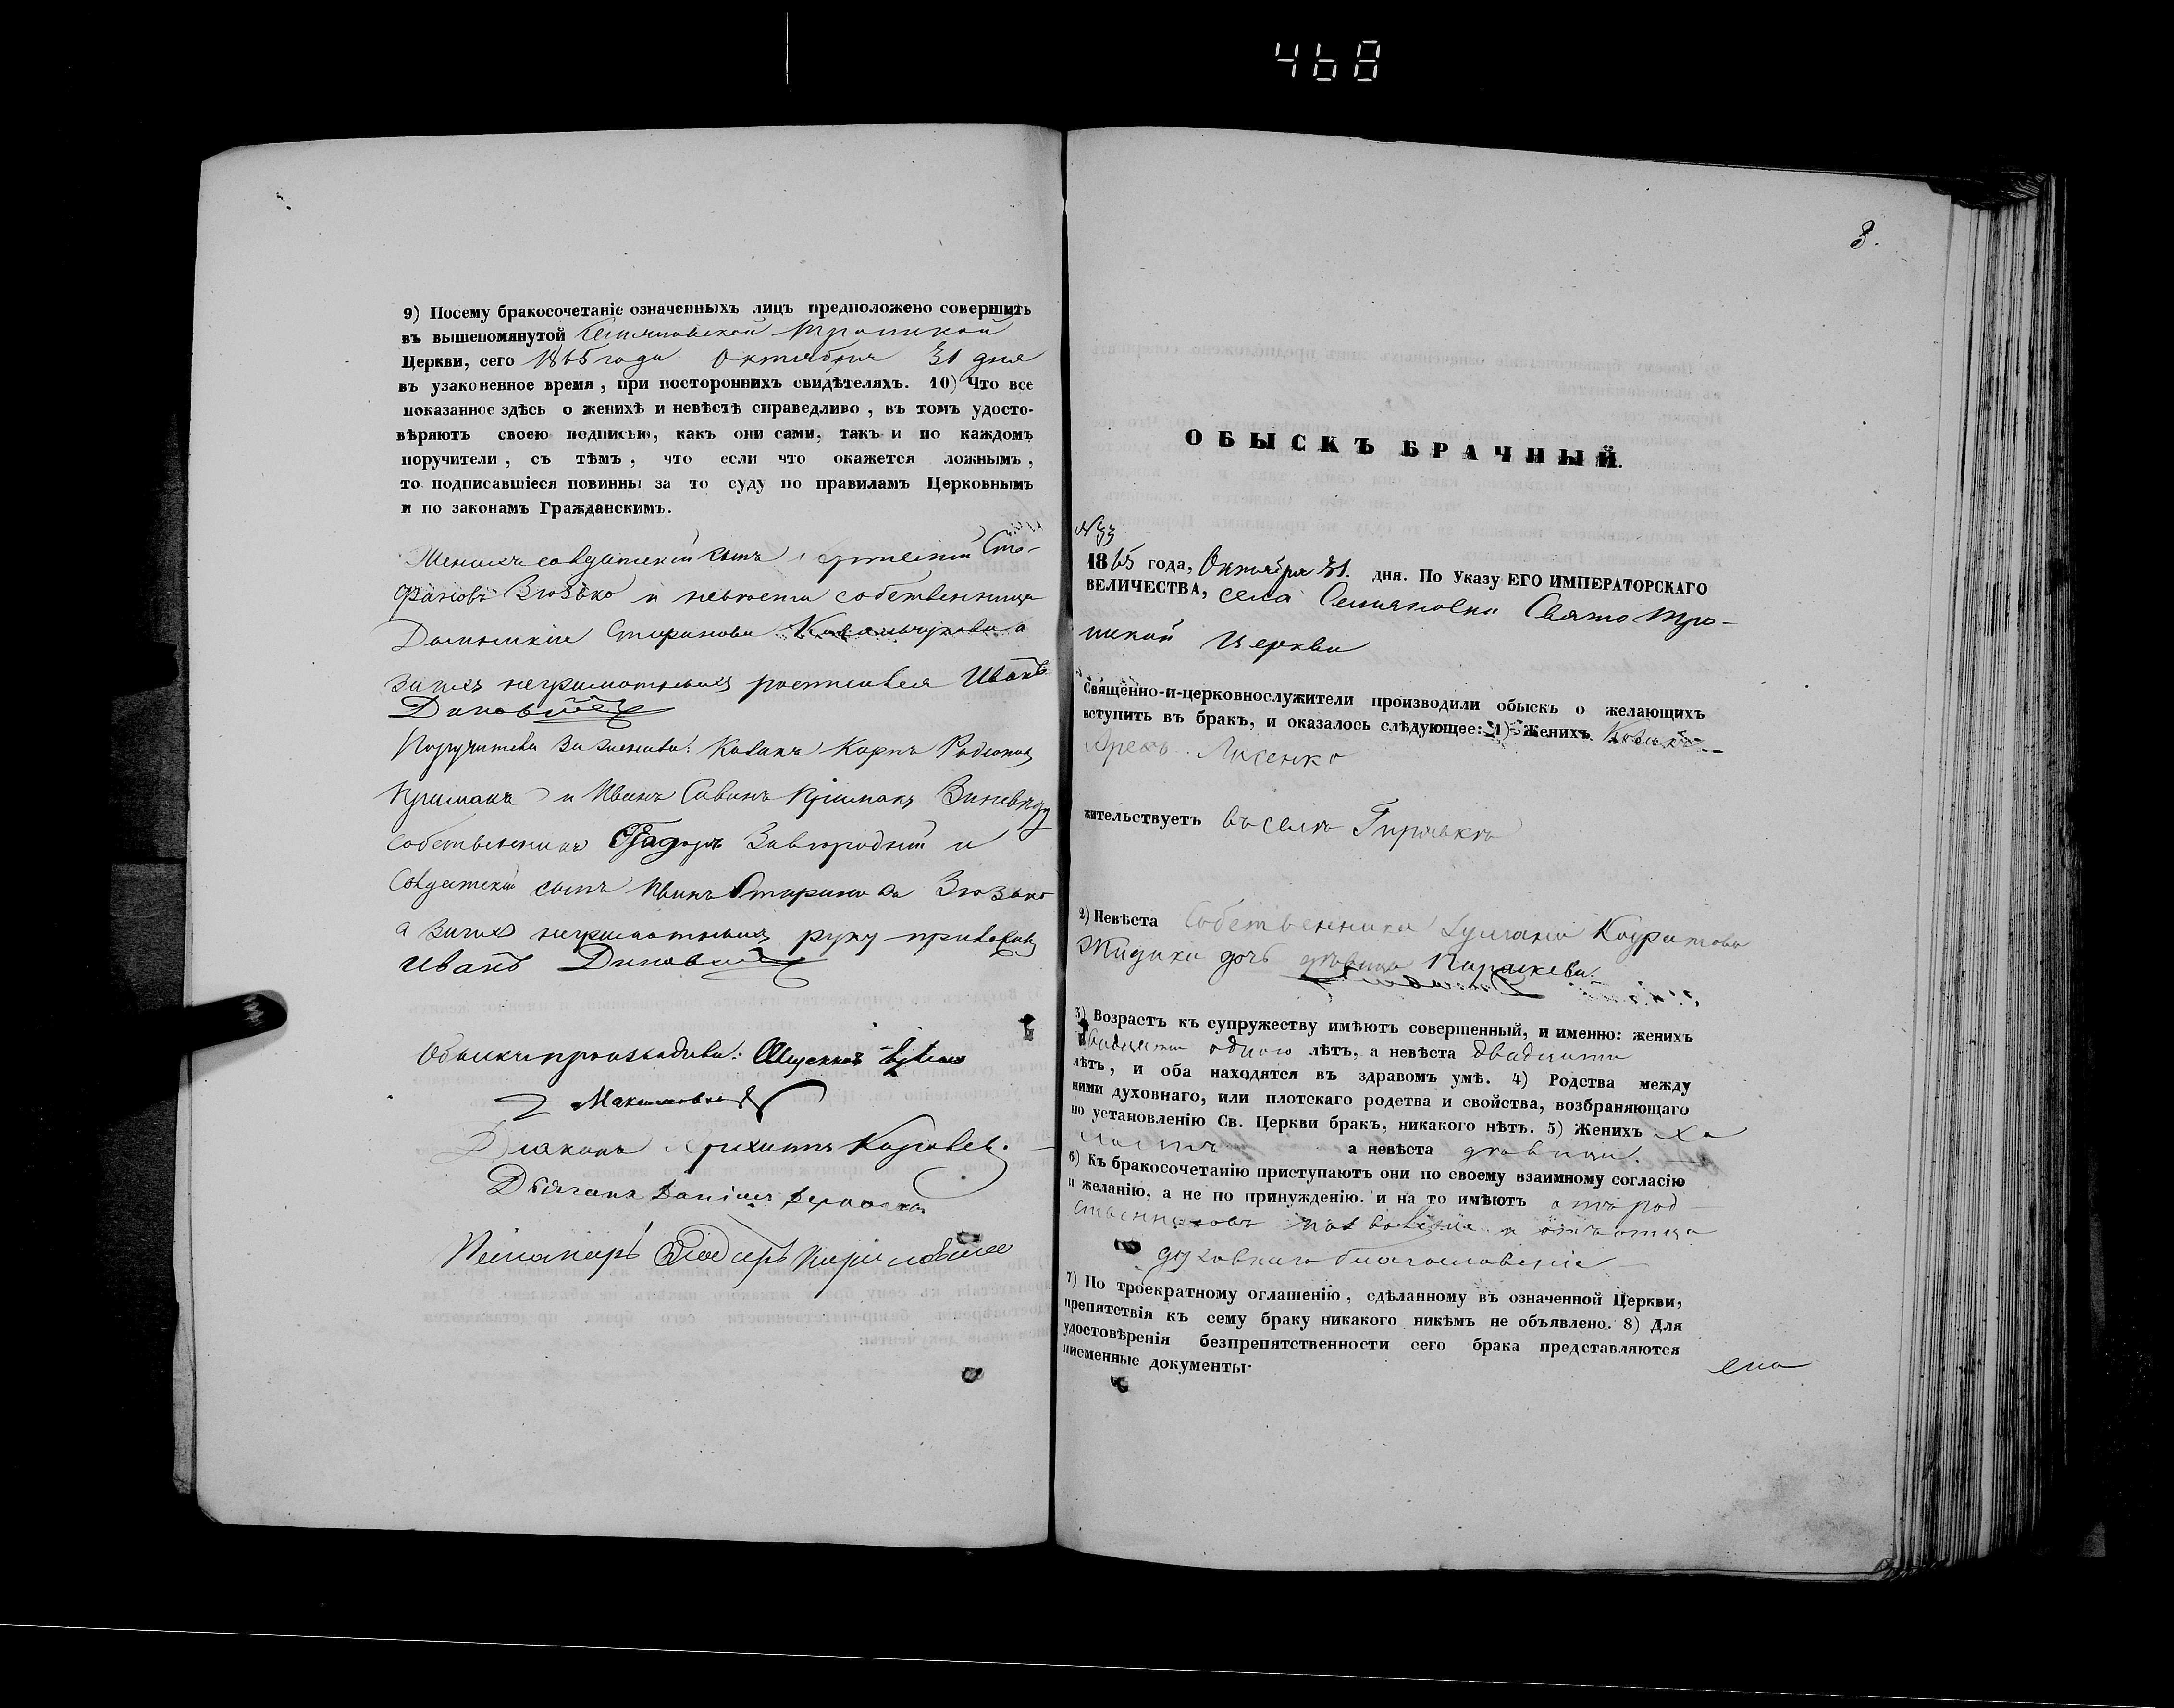 468
9) Посему бракосочетаніе означенныхъ лицъ предположено совершить
въ вышепомянутой Семяновской Троицкой
Церкви, сего 1865 года Октября 31 дня
въ узаконенное время, при постороннихъ свидѣтеляхъ. 10) Что все
показанное здѣсь о женихѣ и невѣстѣ справедливо, въ томъ удосто-
вѣряютъ своею подписью, какъ они сами, такъ и по каждомъ
поручители, съ тѣмъ, что если что окажется ложнымъ,
то подписавшіеся повинны за то суду по правиламъ Церковнымъ
и по законамъ Гражданскимъ.
Женихъ солдатскій сынъ Сте-
фановъ Зюзько и невѣста собственница
Ковальчукова а
за ихъ неграмотныхъ Иванъ
Поручители по женихѣ: Козакъ Карпъ Родіоновъ
Примакъ и Иванъ Савинъ Примакъ
собственникъ Завгородній и
Солдатскій сынъ Иванъ Зюзько
а за ихъ неграмотныхъ руку приложилъ
Иванъ
Обыскъ производили: Священникъ
Максимовичъ
Діаконъ
Дьячекъ Даніилъ
Пономарь
3.
ОБЫСКЪ БРАЧНЫЙ.
№ 33
1865 года, Октября 31. дня. По Указу ЕГО ИМПЕРАТОРСКАГО
ВЕЛИЧЕСТВА, села Семяновки Свято Тро-
ицкой Церкви
Священно-и-церковнослужители производили обыскъ о желающихъ
вступить въ бракъ, и оказалось слѣдующее: 1) Женихъ Козакъ
Лисенко
жительствуетъ въ селѣ Гирявкѣ
2) Невѣста Собственника
Жидика дочь дѣвица Параскева.
3) Возрастъ къ супружеству имѣютъ совершенный, и именно: женихъ
двадцати одного лѣтъ, а невѣста двадцати
лѣтъ, и оба находятся въ здравомъ умѣ. 4) Родства между
ними духовнаго, или плотскаго родства и свойства, возбраняющаго
по установленію Св. Церкви бракъ, никакого нѣтъ. 5) Женихъ хо
лостъ а невѣста дѣвица.
6) Къ бракосочетанію приступаютъ они по своему взаимному согласію
и желанію, а не по принужденію. и на то имѣютъ отъ род
ственниковъ позволеніе и отъ отца
духовнаго благословеніе
7) По троекратному оглашенію, сдѣланному въ означенной Церкви,
препятствія къ сему браку никакого никѣмъ не объявлено. 8) Для
удостовѣренія безпрепятственности сего брака представляются
писменные документы·